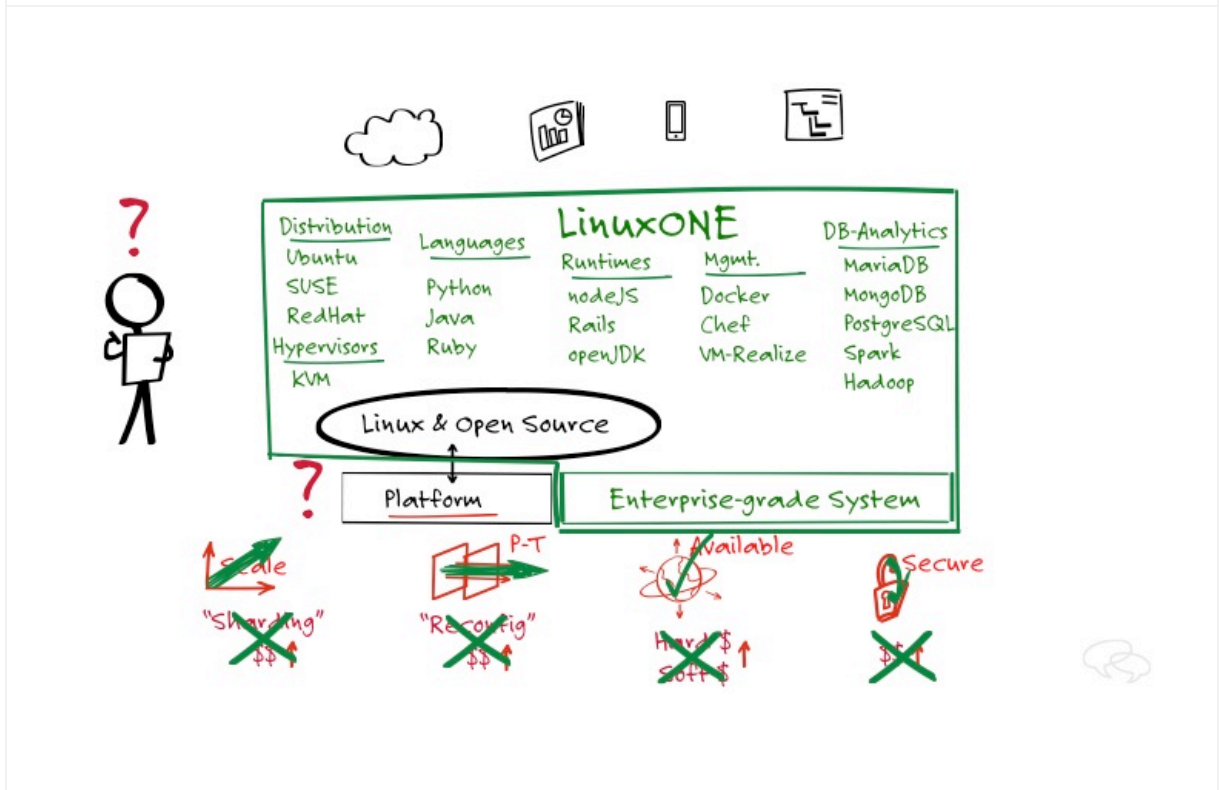 ?
LinuxONE
Distribution
Ubuntu
SUSE
RedHat
Hypervisors
KVM
Languages
Python
Java
Ruby
Runtimes
nodeJS
Rails
openJDK
Mgmt.
Docker
Chef
VM-Realize
DB-Analytics
MariaDB
MongoDB
PostgreSQL
Spark
Hadoop
Linux & Open Source
?
Platform
Enterprise-grade System
Scale
"Sharding"
$$
P-T
"Reconfig"
$$
Available
Hard $
Soft $
Secure
$$